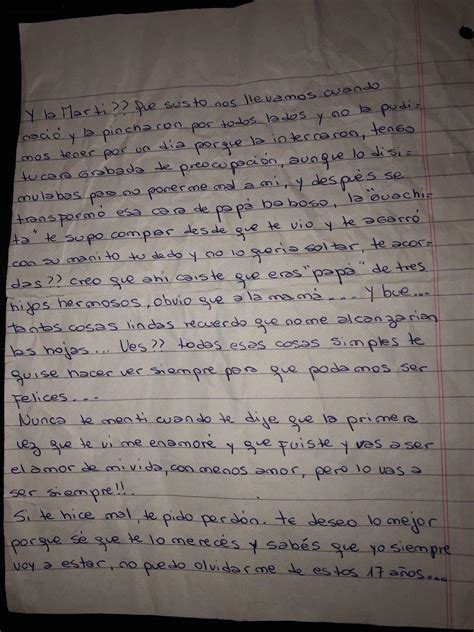 Y la Marti?? Que susto nos llevamos cuando
nació y la pincharon por todos lados y no la pudi-
mos tener por un dia porque la internaron, tengo
tu cara grabada de preocupación, aunque lo disi-
mulabas para no ponerme mal a mi, y después se
transformó esa cara de papá baboso, la "Guachi-
ta" te supo comprar desde que te vio y te agarró
con su manito tu dedo y no lo queria soltar, te acor-
das?? creo que ahi caiste que eras "papá" de tres
hijos hermosos, obvio que a la mamá.... Y bue...
tantas cosas lindas recuerdo que no me alcanzarian
las hojas... Ves?? todas esas cosas simples te
quise hacer ver siempre para que podamos ser
Felices....
Nunca te menti cuando te dije que la primera
vez que te vi me enamoré y que fuiste y vas a ser
el amor de mi vida, con menos amor, pero lo vas a
ser siempre!!.
Si te hice mal, te pido perdón. te deseo lo mejor
porque sé que te lo merecés y sabés que yo siempre
voy a estar, no puedo olvidarme de estos 17 años....